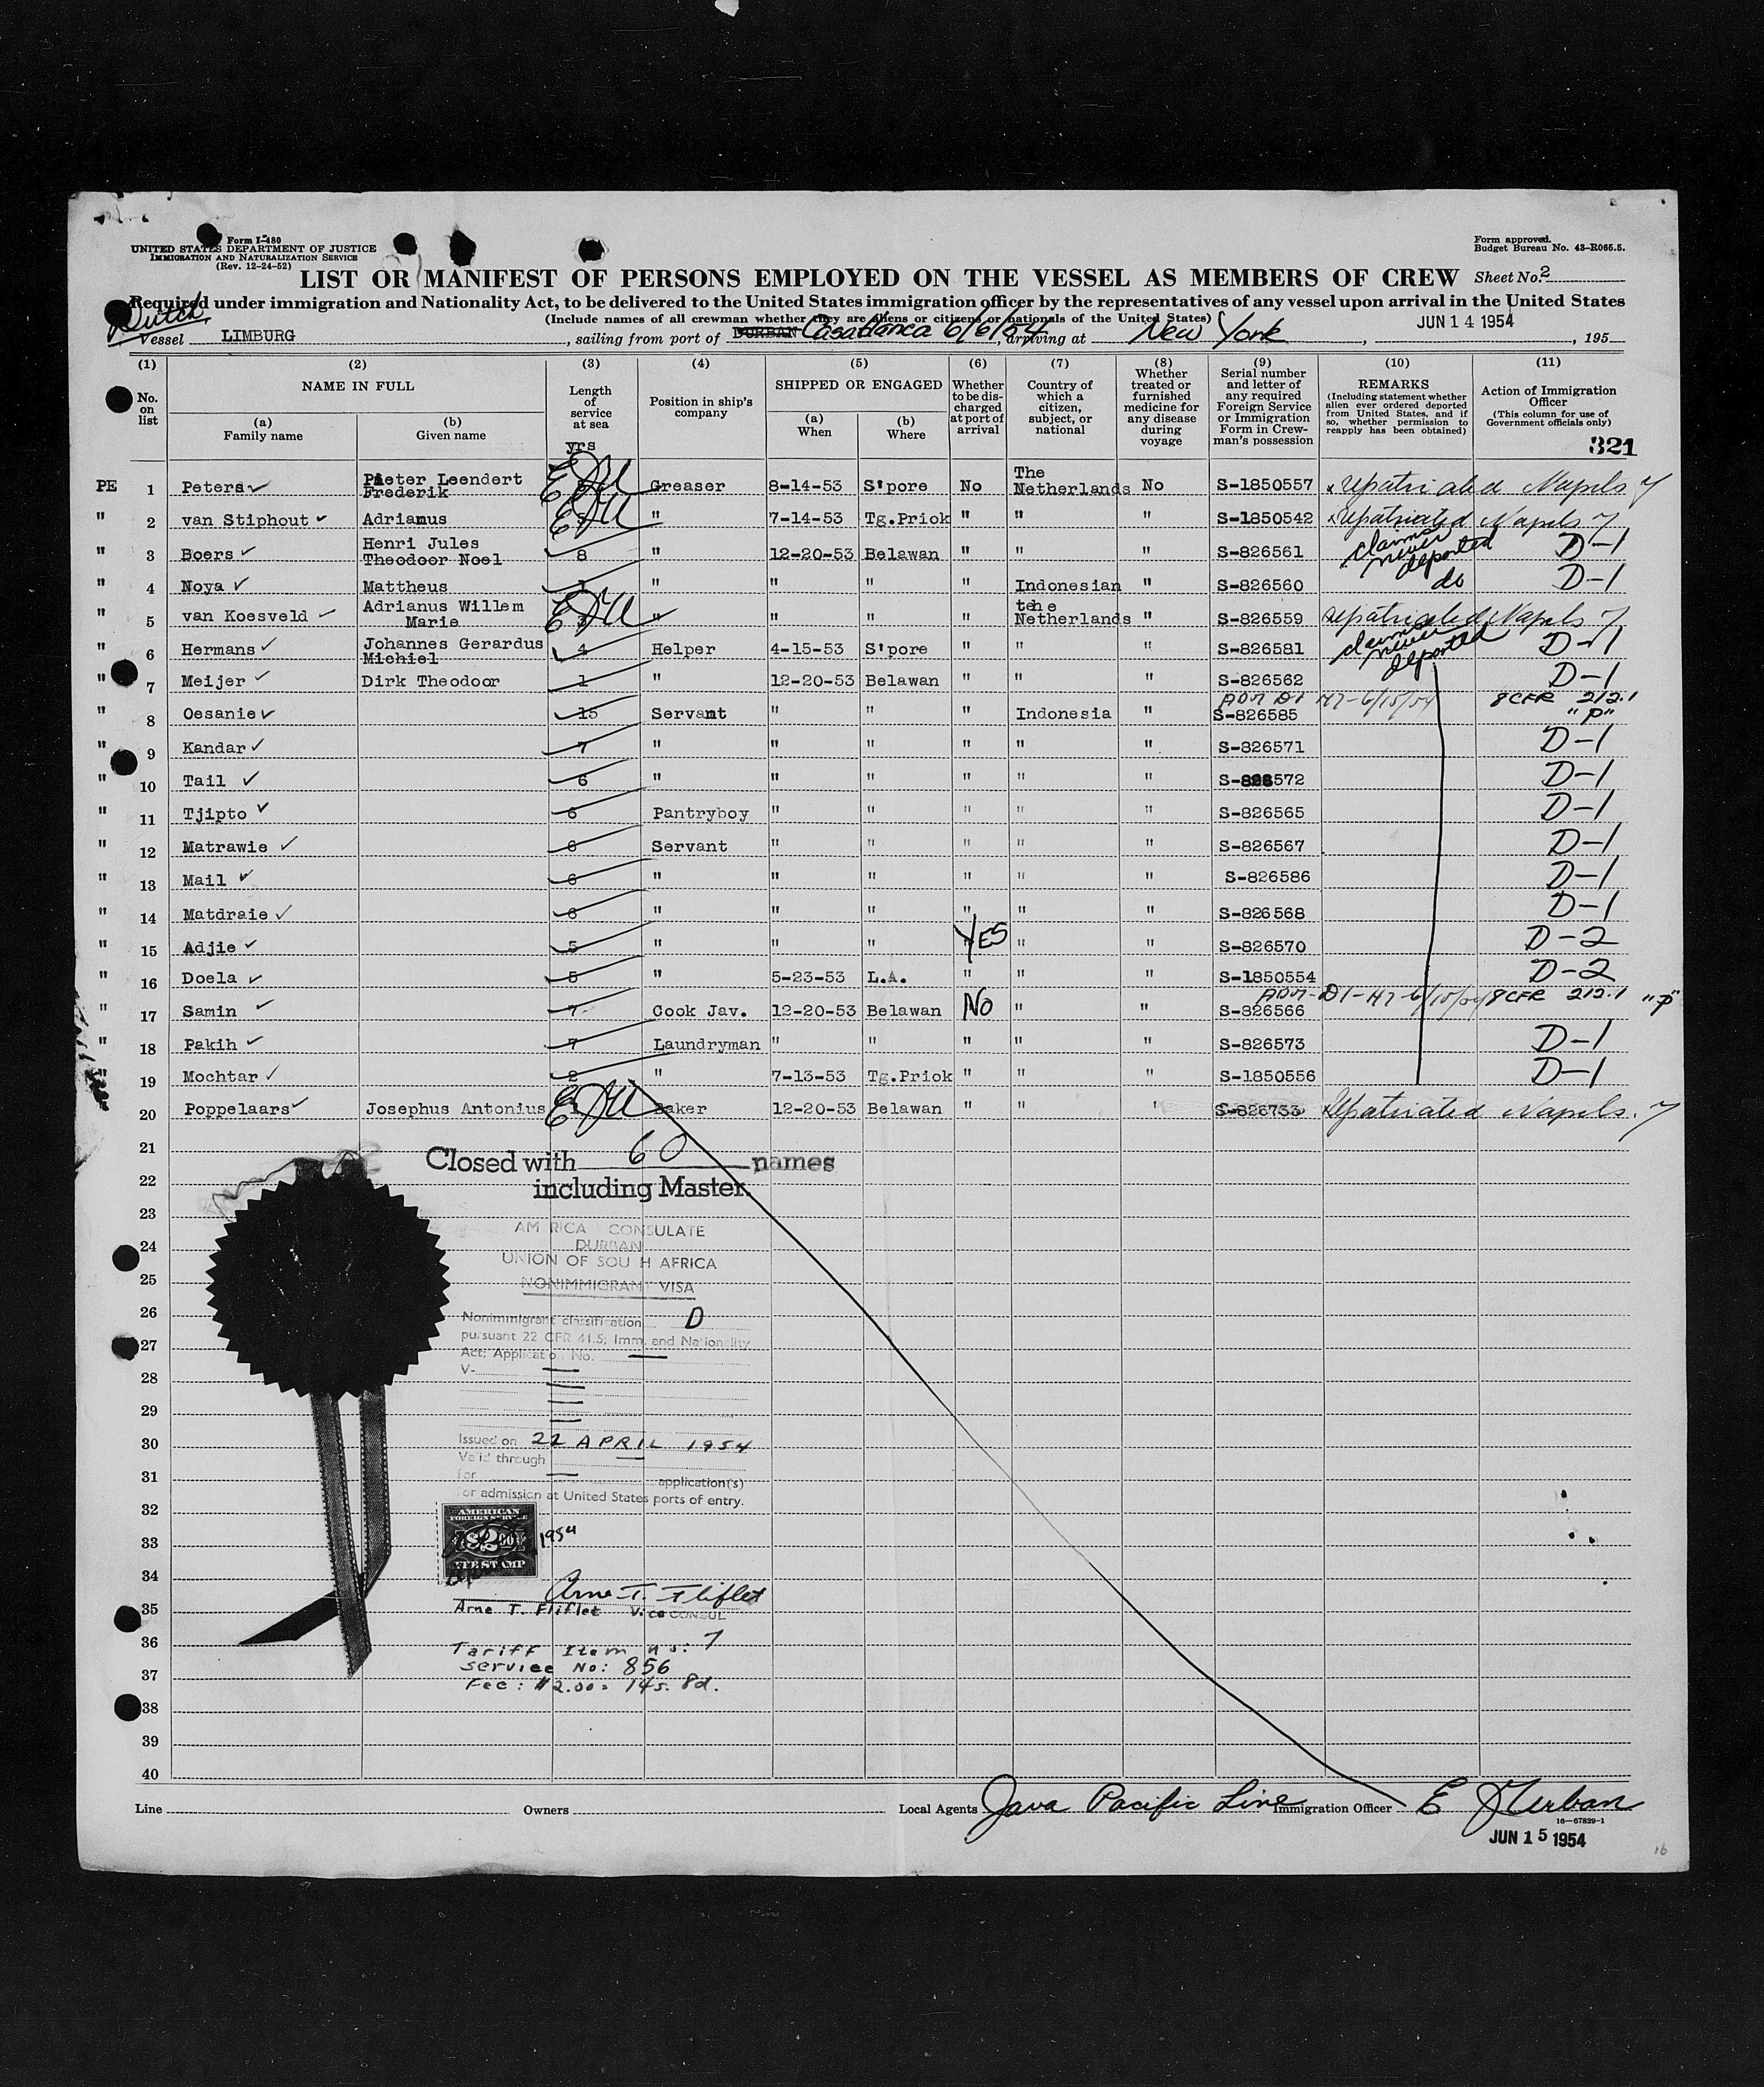 Form I-480
UNITED STATES DEPARTMENT OF JUSTICE
IMMIGRATION AND NATURALIZATION SERVICE
(Rev. 12-24-52)
Form approved.
Budget Bureau No. 43-R065.5.
LIST OR MANIFEST OF PERSONS EMPLOYED ON THE VESSEL AS MEMBERS OF CREW Sheet No. 2
Required under immigration and Nationality Act, to be delivered to the United States immigration officer by the representatives of any vessel upon arrival in the United States
(Include names of all crewman whether they are aliens or citizens or nationals of the United States)
JUN 14 1954
Dutch
Vessel LIMBURG, sailing from port of DURBAN Casablanca 6/6/54, arriving at New York, , 195
(1) (2) (3) (4) (5) (6) (7) (8) (9) (10) (11)
No. on list
NAME IN FULL
(a) Family name
(b) Given name
Length of service at sea
yrs
Position in ship's company
SHIPPED OR ENGAGED
(a) When
(b) Where
Whether to be discharged at port of arrival
Country of which a citizen, subject, or national
Whether treated or furnished medicine for any disease during voyage
Serial number and letter of any required Foreign Service or Immigration Form in Crewman's possession
REMARKS
(Including statement whether alien ever ordered deported from United States, and if so, whether permission to reapply has been obtained)
Action of Immigration Officer
(This column for use of Government officials only)
321
PE 1 Peters Pieter Leendert Frederik EJU Greaser 8-14-53 S'pore No The Netherlands No S-1850557 x repatriated Napels 7
" 2 van Stiphout Adrianus EJU " 7-14-53 Tg.Priok " " " S-1850542 x repatriated Napels 7
" 3 Boers Henri Jules Theodoor Noel 8 " 12-20-53 Belawan " " " S-826561 claims never deported D-1
" 4 Noya Mattheus 1 " " " " Indonesian " S-826560 do D-1
" 5 van Koesveld Adrianus Willem Marie EJU " " " " the Netherlands " S-826559 repatriated Napels 7
" 6 Hermans Johannes Gerardus Michiel 4 Helper 4-15-53 S'pore " " " S-826581 claims never deported D-1
" 7 Meijer Dirk Theodoor 1 " 12-20-53 Belawan " " " S-826562 D-1
ADM D1 H7-6/15/54 8 CFR 212.1 "P"
" 8 Oesanie 15 Servant " " " Indonesia " S-826585
" 9 Kandar 7 " " " " " " S-826571 D-1
" 10 Tail 6 " " " " " " S-826572 D-1
" 11 Tjipto 6 Pantryboy " " " " " S-826565 D-1
" 12 Matrawie 6 Servant " " " " " S-826567 D-1
" 13 Mail 6 " " " " " " S-826586 D-1
" 14 Matdraie 6 " " " " " " S-826568 D-1
" 15 Adjie 5 " " " YES " " S-826570 D-2
" 16 Doela 5 " 5-23-53 L.A. " " " S-1850554 D-2
ADM-D1-H7-6/15/54 8 CFR 212.1 "P"
" 17 Samin 7 Cook Jav. 12-20-53 Belawan No " " S-826566
" 18 Pakih 7 Laundryman " " " " " S-826573 D-1
" 19 Mochtar 2 " 7-13-53 Tg.Priok " " " S-1850556 D-1
20 Poppelaars Josephus Antonius 1 EJU Baker 12-20-53 Belawan " " " S-826733 Repatriated Napels. 7
21
Closed with 60 names
22
including Master.
23
AMERICA CONSULATE
24
DURBAN
UNION OF SOUTH AFRICA
25
NONIMMIGRANT VISA
26
Nonimmigrant classification D
27
pursuant 22 CFR 41.5; Imm. and Nationality
Act; Application No.
28
V-
29
30
Issued on 22 APRIL 1954
Valid through
31
for application(s)
for admission at United States ports of entry.
32
AMERICAN
FOREIGN SERVICE
33
$2.00 1954
FEE STAMP
34
Arne T. Fliflet
35
Arne T. Fliflet Vice CONSUL
36
Tariff Item no: 7
37
Service No: 856
Fee: $2.00 = 14s. 8d.
38
39
40
Line Owners Local Agents Java Pacific Line Immigration Officer E J Urban
16-67829-1
JUN 15 1954
16